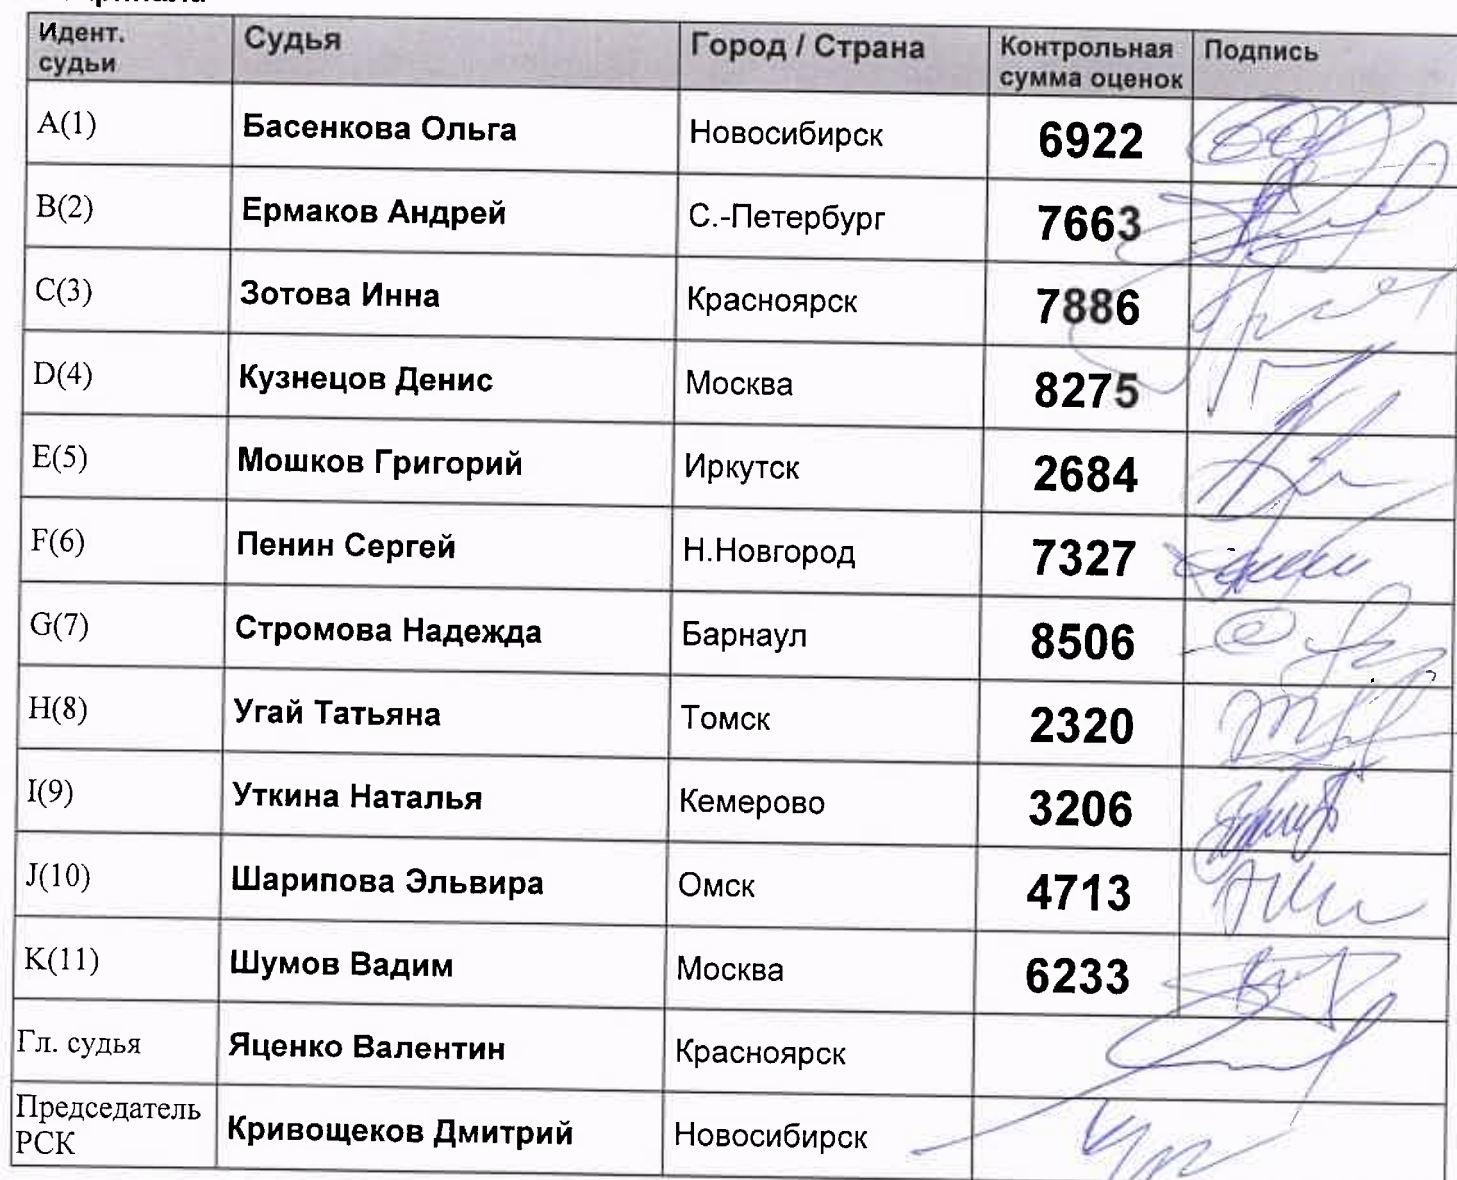 Идент. судьи Судья Город / Страна Контрольная сумма оценок Подпись
A(1) Басенкова Ольга Новосибирск 6922
B(2) Ермаков Андрей С.-Петербург 7663
C(3) Зотова Инна Красноярск 7886
D(4) Кузнецов Денис Москва 8275
E(5) Мошков Григорий Иркутск 2684
F(6) Пенин Сергей Н.Новгород 7327
G(7) Стромова Надежда Барнаул 8506
H(8) Угай Татьяна Томск 2320
I(9) Уткина Наталья Кемерово 3206
J(10) Шарипова Эльвира Омск 4713
K(11) Шумов Вадим Москва 6233
Гл. судья Яценко Валентин Красноярск
Председатель РСК Кривощеков Дмитрий Новосибирск